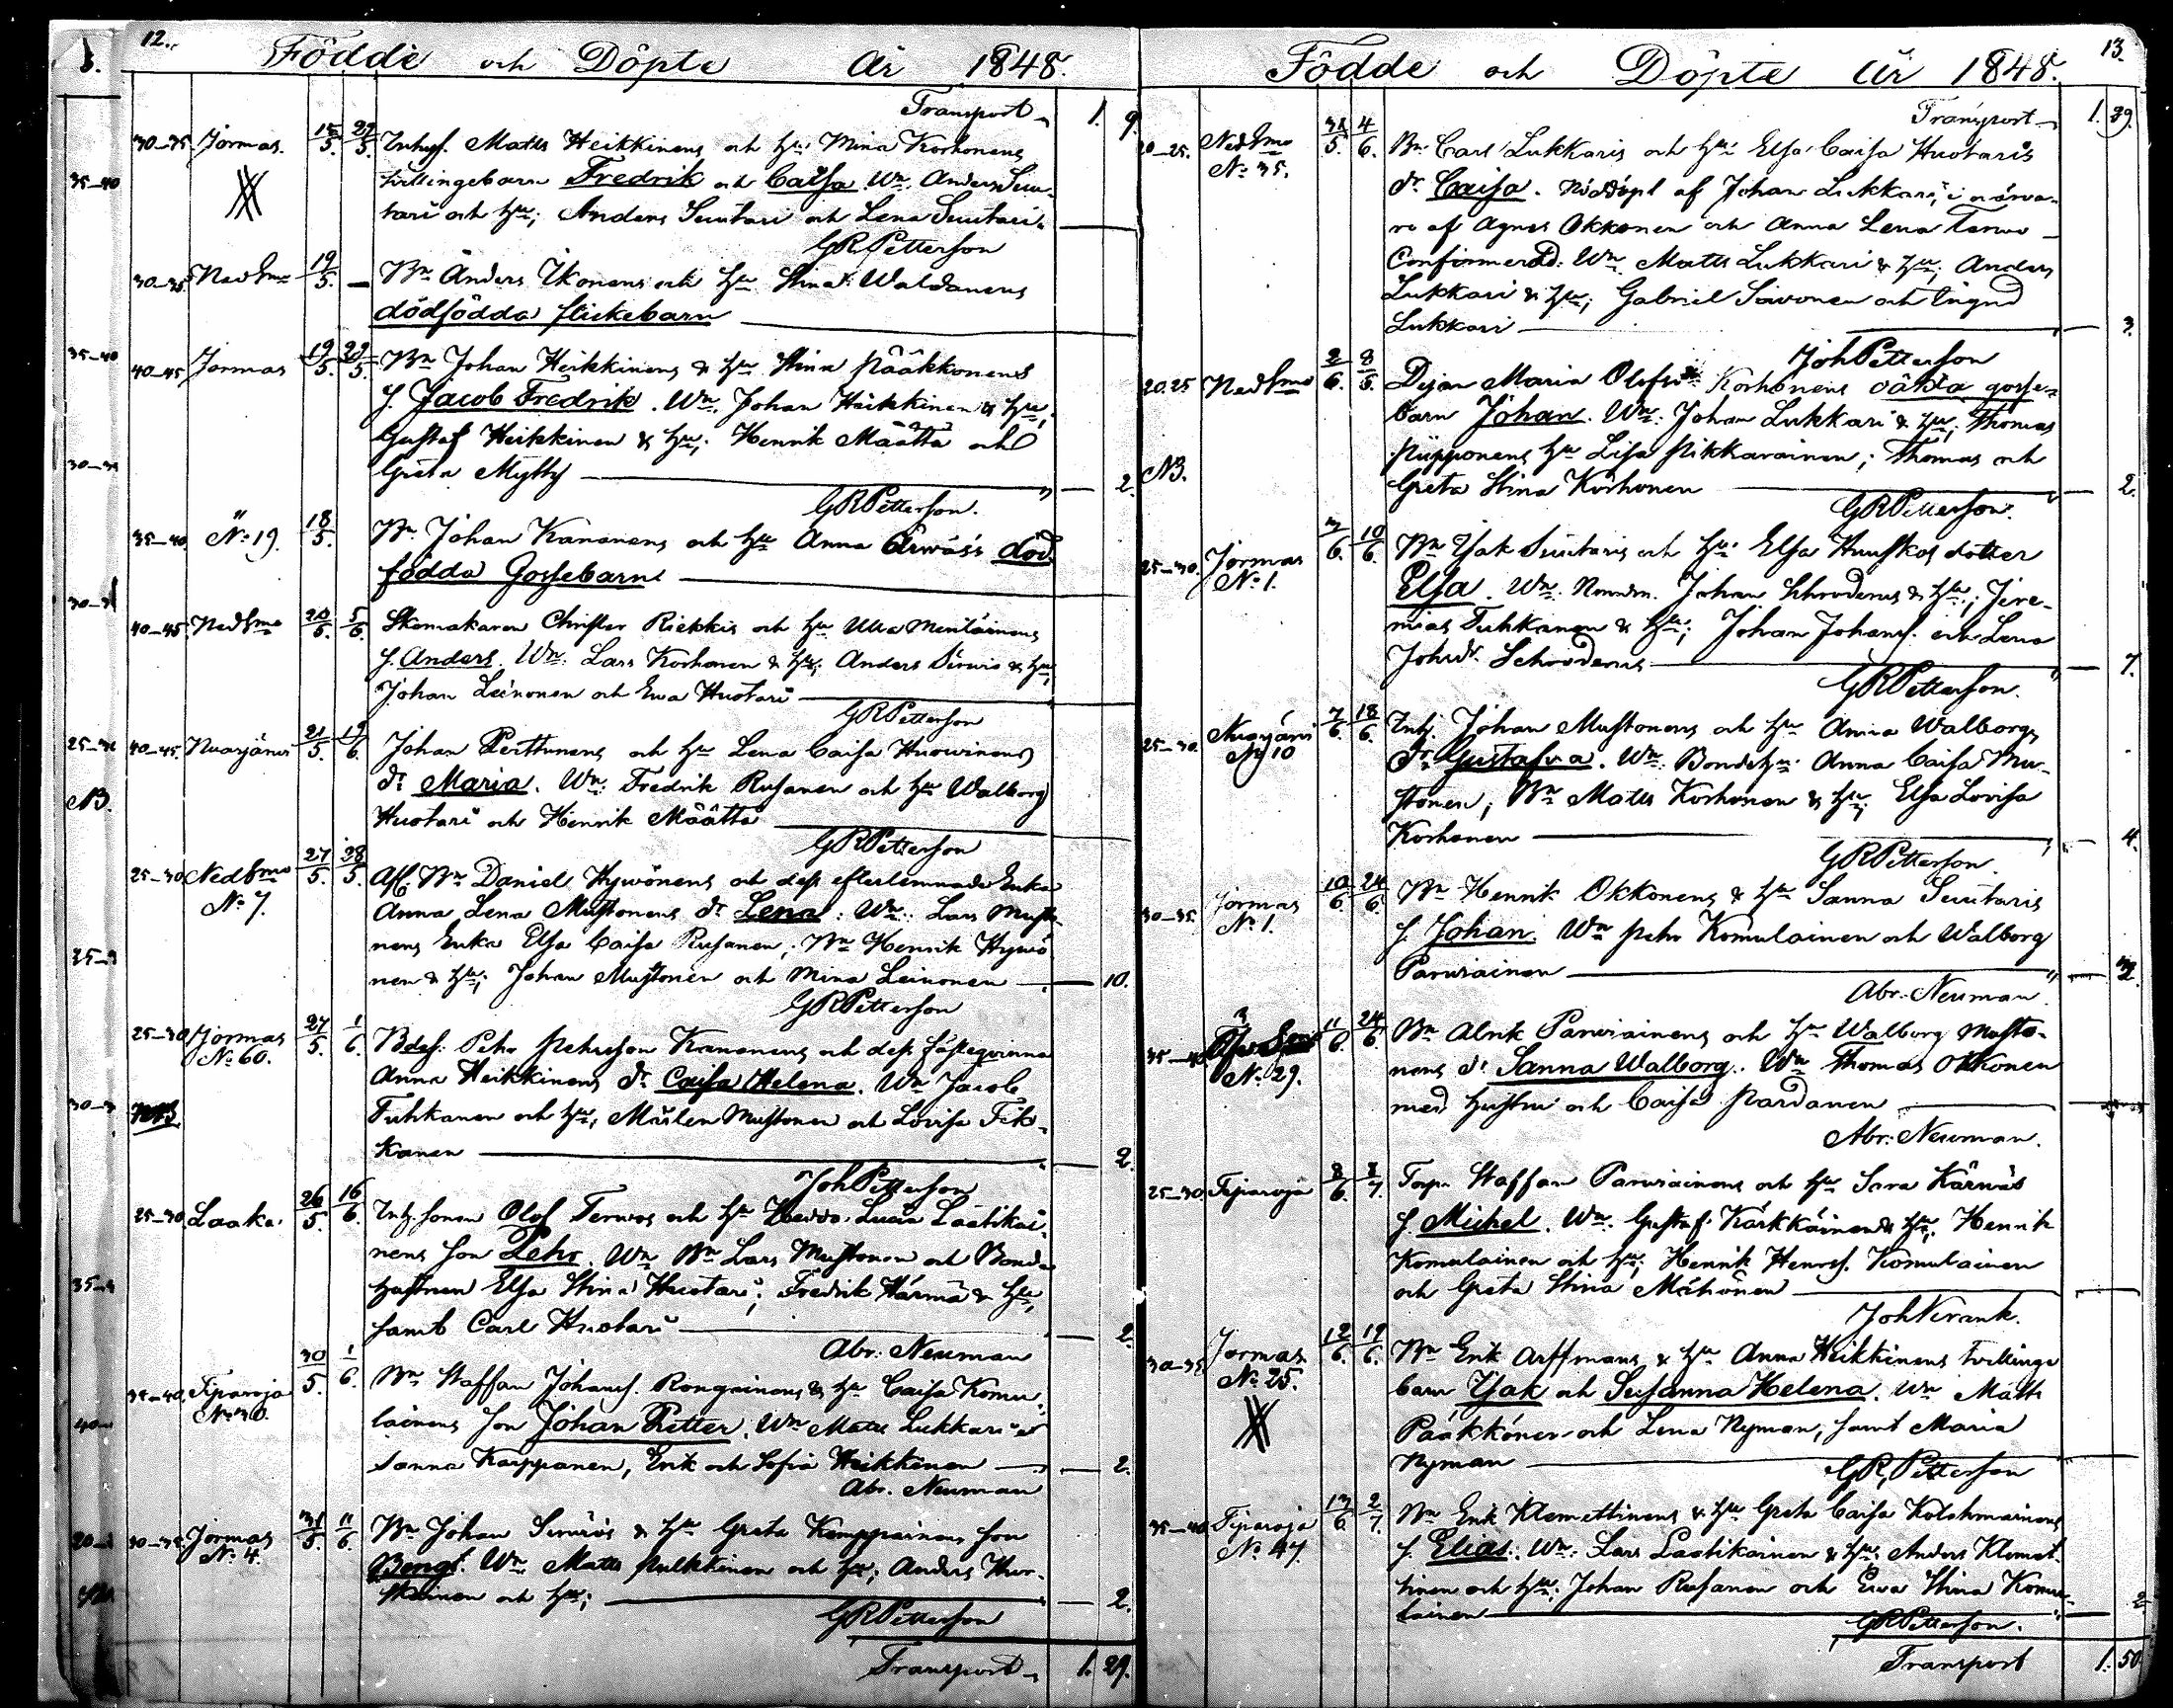 12.
Födde och Döpte År 1848.
Transport 1. 9.
30-35 Jormas. 15/5. 29/5. Inhys. Matts Heikkinens och Hu Mina Korhonens
tvillingebarn Fredrik och Caisa. Wn. Anders Seu-
tari och Hu; Anders Seutari och Lena Seutari.
GRPetterson
30-35 Nedsmo 19/5. — Bn Anders Ikonens och Hu Stina Waldanens
dödfödda flickebarn
40-45 Jormas 19/5. 29/5. Bn Johan Heikkinens & Hu Stina Pääkkönens
s. Jacob Fredrik. Wn. Johan Heikkinen & Hu;
Gustaf Heikkinen & Hu; Henrik Määttä och
Greta Mylly 2.
GRPetterson.
35-40 " No 19. 18/5. Bn Johan Kananens och Hu Anna Ärwäs's död
födda Gossebarn
40-45 Nedsmo 20/5. 5/6. Skomakaren Christer Riekkis och Hu Ulla
s. Anders. Wn. Lars Korhonen & Hu; Anders & Hu;
Johan Leinonen och Ewa Huotari
GRPetterson
40-45 Nuasjärwi 21/5. 19/6. Johan Perttunens och Hu Lena Caisa Huowinens
dr Maria. Wn: Fredrik Rusanen och Hu Walborg
Huotari och Henrik Määttä
GRPetterson
25-30 Nedsmo No 7. 27/5. 28/5. Afl. Bn Daniel Hywönens och dess efterlemnade Enka
Anna Lena Mustonens dr Lena: Wn: Lars Musto-
nens Enka Elsa Caisa Rusanen; Bn Henrik Hywö-
nen & Hu; Johan Mustonen och Mina Leinonen 10.
GRPetterson
25-30 Jormas No 60. 27/5. 1/6. Bdes. Pehr Pehrsson Kananens och dess fästeqvinna
Anna Heikkinens dr Caisa Helena. Wn Jacob
NB Tuhkanen och Hu; Mustonen och Lovisa Tuh-
kanen 2.
JohPetterson
25-30 Laaka 26/5. 16/6. Inh. sonen Olof Terwos och Hu Hedda Luisa Laatikai-
nens son Pehr. Wn Bn Lars Mustonen och Bonde
hustrun Elsa Stina Huotari; Fredrik Härmä & Hu,
samt Carl Huotari 2.
Abr. Neuman
35-40 Tiparoja No 30. 30/5. 1/6. Bn Staffan Johanss. Rongainens & Hu Caisa Komu-
lainens son Johan Petter. Wn Matts Lukkari o
Sanna Karppanen, Erik och Sofia Heikkinen 2.
Abr. Neuman
30-35 Jormas No 4. 31/5. 11/6. Bn Johan & Hu Greta Kemppainens son
Bengt. Wn. Matts Pulkkinen och Hu; Anders Hur-
skainen och Hu; 2.
GRPetterson
Transport 1. 29.
13.
Födde och Döpte År 1848.
Transport 1. 29.
20-25. Nedsmo No 35. 31/5. 4/6. Bn Carl Lukkaris och Hu Elsa Caisa Huotaris
dr Caisa. Nöddöpt af Johan Lukkari, i närwa-
ro af Agnes Okkonen och Anna Lena Terwo
Confirmerad. Wn. Matts Lukkari & Hu; Anders
Lukkari & Hu; Gabriel Sawonen och Ingrid
Lukkari 3.
JohPetterson
20.25 Nedsmo 2/6. 8/6. Pigan Maria Olofsdr Korhonens oäkta gosse-
barn Johan. Wn: Johan Lukkari & Hu; Thomas
NB. Piipponens Hu Lisa Pikkarainen; Thomas och
Greta Stina Korhonen 2.
GRPetterson.
25-30. Jormas No 1. 3/6. 10/6. Bn Isak Seutaris och Hu Elsa Huuskos dotter
Elsa. Wn. Nämdm. Johan Schroderus & Hu; Jere-
mias Tuhkanen & Hu; Johan Johanss. och Lena
Johsdr. Schroderus 7.
GRPetterson.
25-30. Nuasjärwi No 10 7/6. 18/6. Inh. Johan Mustonens och Hu Anna Walborgs
dr Gustafva. Wn: Bondehu Anna Caisa Mu-
stonen; Bn Matts Korhonen & Hu; Elsa Lovisa
Korhonen 4.
GRPetterson.
30-35. Jormas No 1. 10/6. 24/6. Bn Henrik Okkonens & Hu Sanna Seutaris
s. Johan. Wn Pehr Komulainen och Walborg
Parwiainen 2.
Abr. Neuman.
35-40 No 29. 11/6. 24/6. Bn Alrik Parwiainens och Hu Walborg Musto-
nens dr Sanna Walborg. Wn Thomas Okkonen
med hustru och Caisa Pardanen
Abr. Neuman.
25-30 Tiparoja 8/6. 2/7. Torp. Staffan Parwiainens och Hu Sara Kärnäs
s. Michel. Wn. Gustaf Kärkkäinen & Hu; Henrik
Komulainen och Hu; Henrik Henrss. Komulainen
och Greta Stina Mähönen
JohVerank.
30-35 Jormas No 25. 12/6. 19/6. Bn Erik Arffmans & Hu Anna Heikkinens tvillinge
barn Isak och Susanna Helena. Wn Matts
Pääkkönen och Lena Nyman, samt Maria
Nyman
GRPetterson
35-40 Tiparoja No 47 13/6. 2/7. Bn Erik Klemettinens & Hu Greta Caisa Kolehmainens
s. Elias. Wn: Lars Laatikainen & Hu; Anders Klemet-
tinen och Hu; Johan Rusanen och Ewa Stina Komu-
lainen 2
GRPetterson.
Transport 1. 50